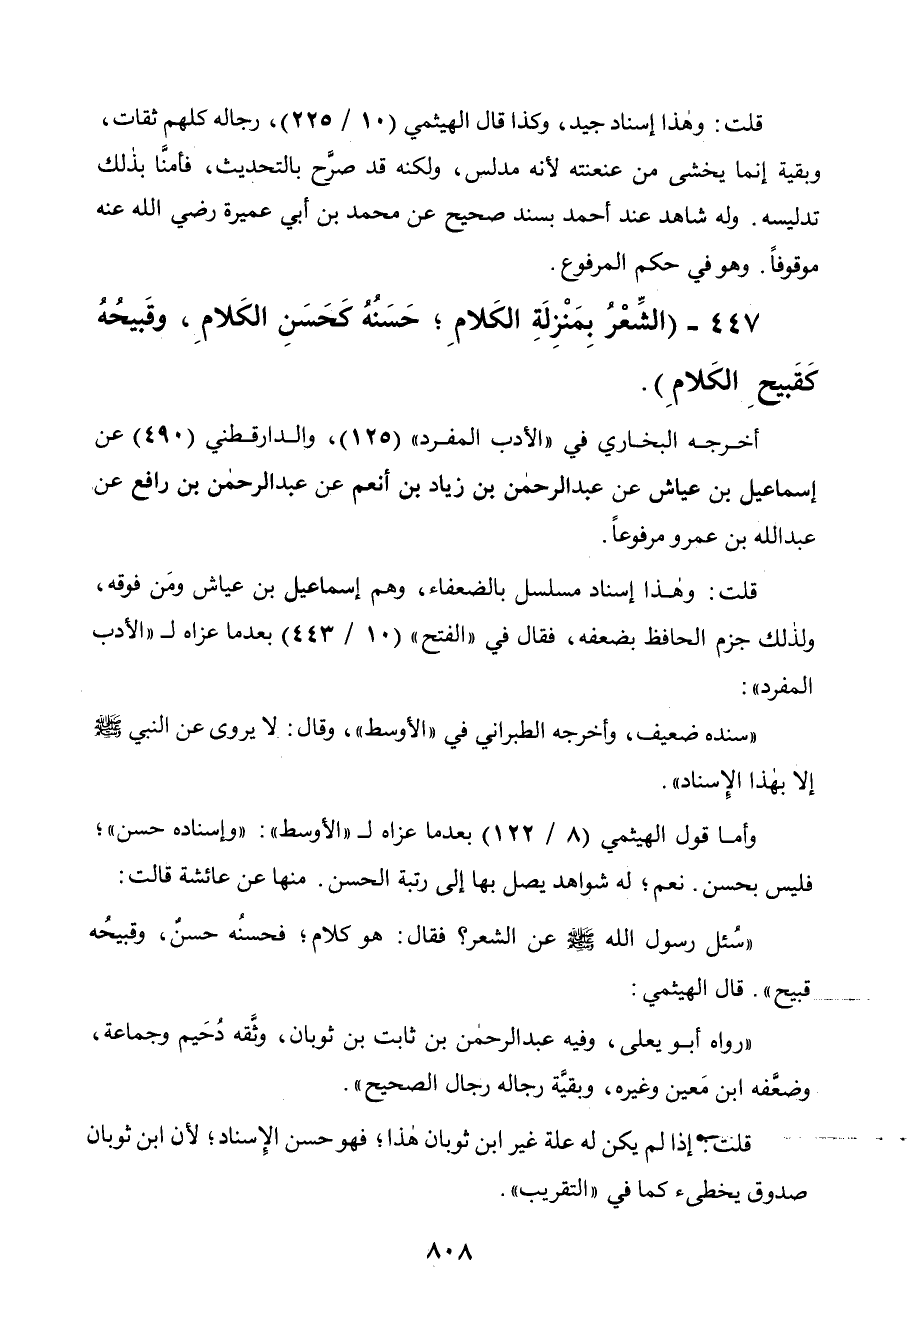 قلت: وهٰذا إسناد جيد، وكذا قال الهيثمي (١٠ / ٢٢٥)، رجاله كلهم ثقات،
وبقية إنما يخشى من عنعنته لأنه مدلس، ولكنه قد صرَّح بالتحديث، فأمنَّا بذٰلك
تدليسه. وله شاهد عند أحمد بسند صحيح عن محمد بن أبي عميرة رضي الله عنه
موقوفاً. وهو في حكم المرفوع.
٤٤٧ - (الشِّعْرُ بِمَنْزِلَةِ الكَلامِ؛ حَسَنُهُ كَحَسَنِ الكَلامِ، وقَبيحُهُ
كَقَبيحِ الكَلامِ).
أخرجه البخاري في «الأدب المفرد» (١٢٥)، والدارقطني (٤٩٠) عن
إسماعيل بن عياش عن عبدالرحمٰن بن زياد بن أنعم عن عبدالرحمٰن بن رافع عن
عبدالله بن عمرو مرفوعاً.
قلت: وهٰذا إسناد مسلسل بالضعفاء، وهم إسماعيل بن عياش ومَن فوقه،
ولذٰلك جزم الحافظ بضعفه، فقال في «الفتح» (١٠ / ٤٤٣) بعدما عزاه لـ «الأدب
المفرد»:
«سنده ضعيف، وأخرجه الطبراني في «الأوسط»، وقال: لا يروى عن النبي ﷺ
إلا بهٰذا الإِسناد».
وأما قول الهيثمي (٨ / ١٢٢) بعدما عزاه لـ «الأوسط»: «وإسناده حسن»؛
فليس بحسن. نعم؛ له شواهد يصل بها إلى رتبة الحسن. منها عن عائشة قالت:
«سُئل رسول الله ﷺ عن الشعر؟ فقال: هو كلام؛ فحسنُه حسنٌ، وقبيحُه
قبيح». قال الهيثمي:
«رواه أبو يعلى، وفيه عبدالرحمٰن بن ثابت بن ثوبان، وثَّقه دُحَيم وجماعة،
وضعَّفه ابن مَعين وغيره، وبقيَّة رجاله رجال الصحيح».
قلت: إذا لم يكن له علة غير ابن ثوبان هٰذا؛ فهو حسن الإِسناد؛ لأن ابن ثوبان
صدوق يخطىء كما في «التقريب».
٨٠٨